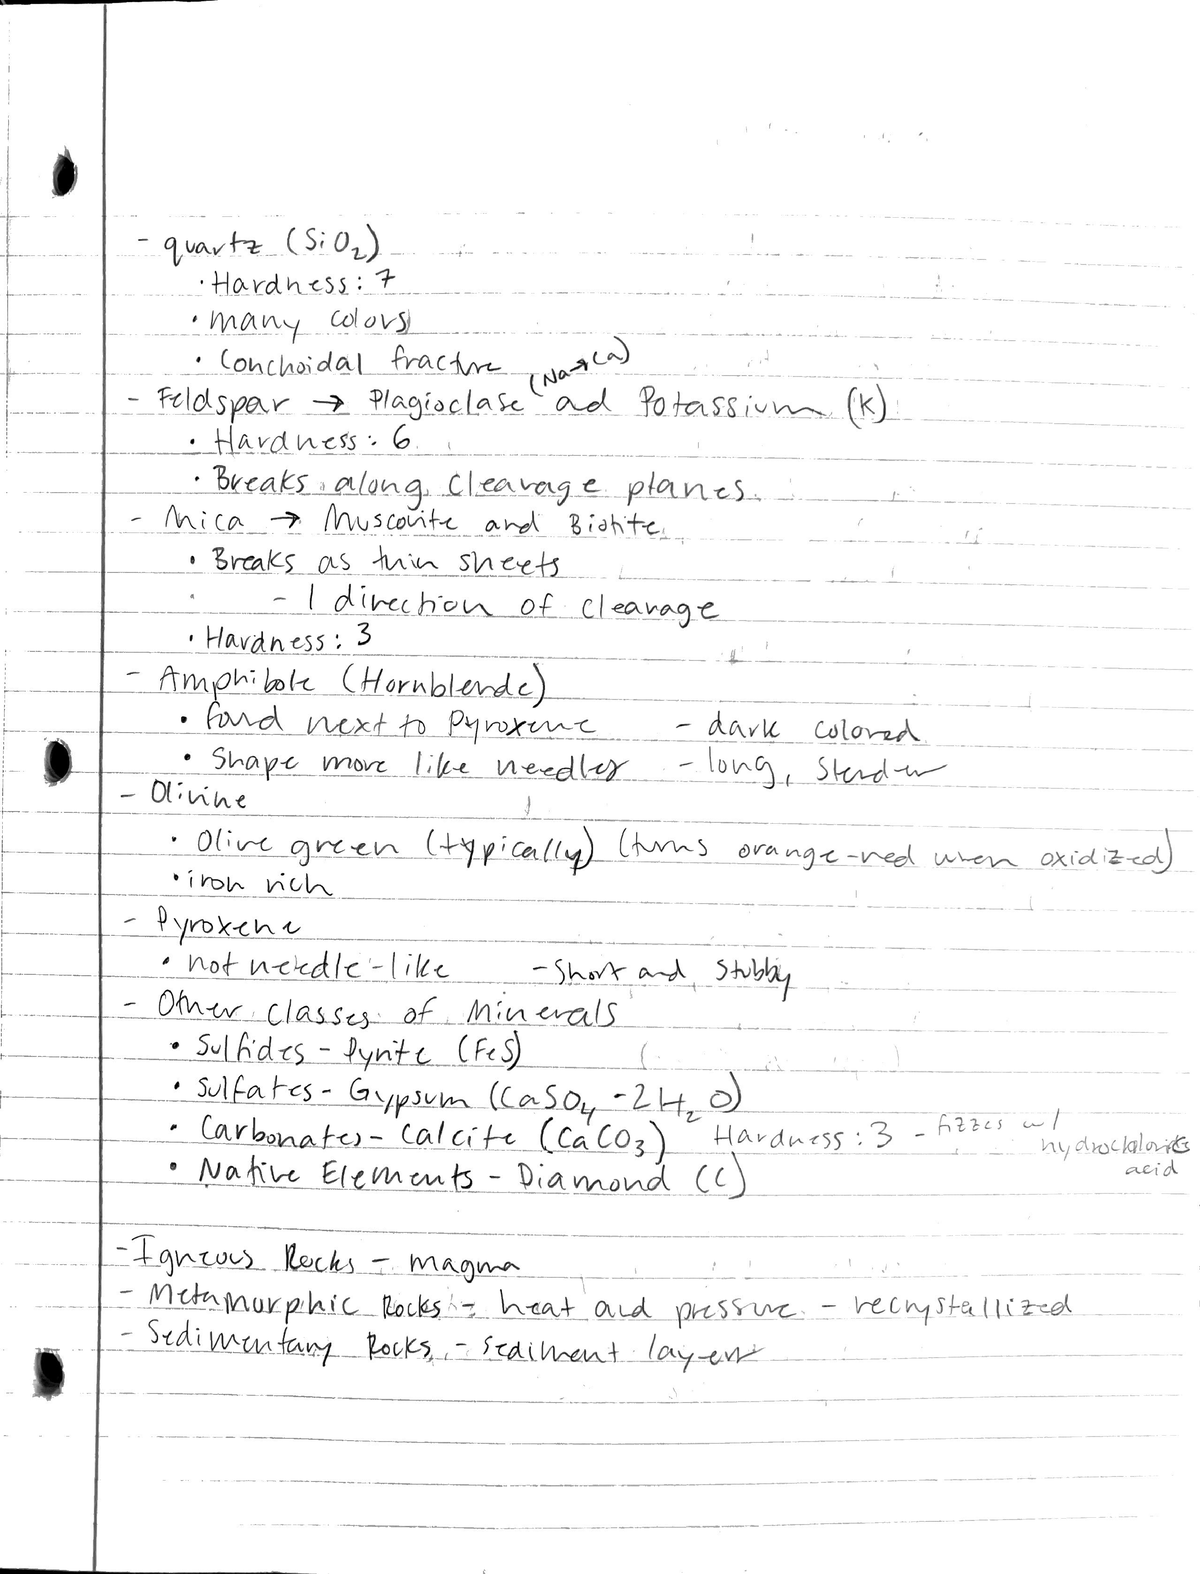 - quartz (SiO₂)
· Hardness: 7
· many colors
· Conchoidal fracture
(Na→Ca)
- Feldspar → Plagioclase ad Potassium (K)
· Hardness: 6
· Breaks along cleavage planes.
- Mica → Muscovite and Biotite
· Breaks as thin sheets
- 1 direction of cleavage
· Hardness: 3
- Amphibole (Hornblende)
· found next to Pyroxene - dark colored
· Shape more like needles - long, slender
- Olivine
· Olive green (typically) (turns orange-red when oxidized)
· iron rich
- Pyroxene
· not needle-like - Short and stubby
- Other classes of Minerals
· Sulfides - Pyrite (FeS)
· Sulfates - Gypsum (CaSO₄ - 2H₂O)
· Carbonates - Calcite (CaCO₃) Hardness: 3 - fizzes w/
hydrochloric
acid
· Native Elements - Diamond (C)
- Igneous Rocks - magma
- Metamorphic Rocks - heat and pressure - recrystallized
- Sedimentary Rocks - sediment layers